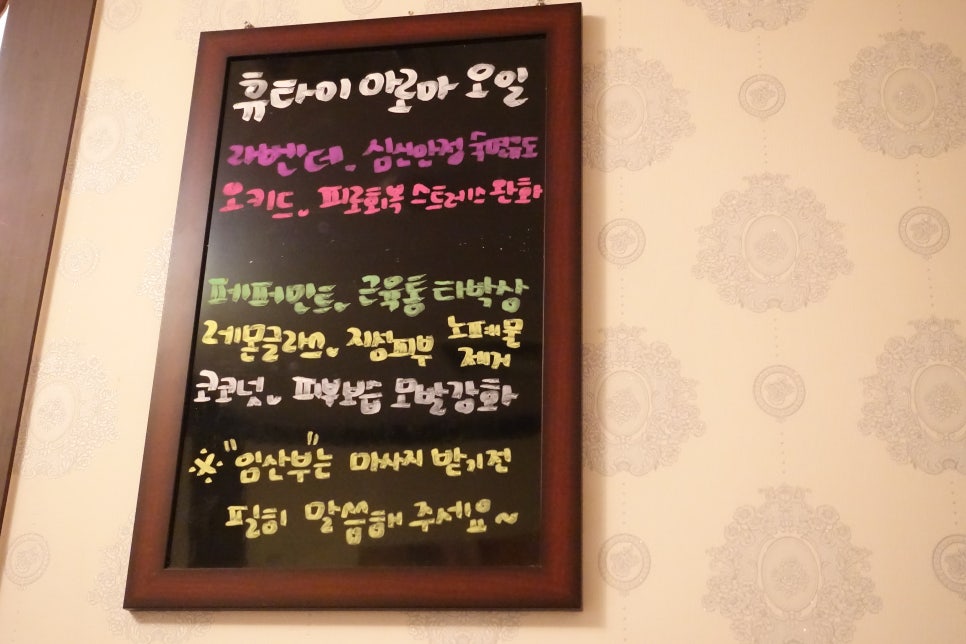 휴타이 아로마 오일
라벤더. 심신안정 숙면유도
오키드. 피로회복 스트레스 완화
페퍼민트. 근육통 타박상
레몬글라스. 지성피부 노폐물
제거
코코넛. 피부보습 모발강화
※ "임산부"는 마사지 받기전
필히 말씀해 주세요~